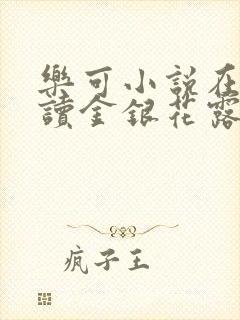 樂可小說在
讀金銀花露
疯子王